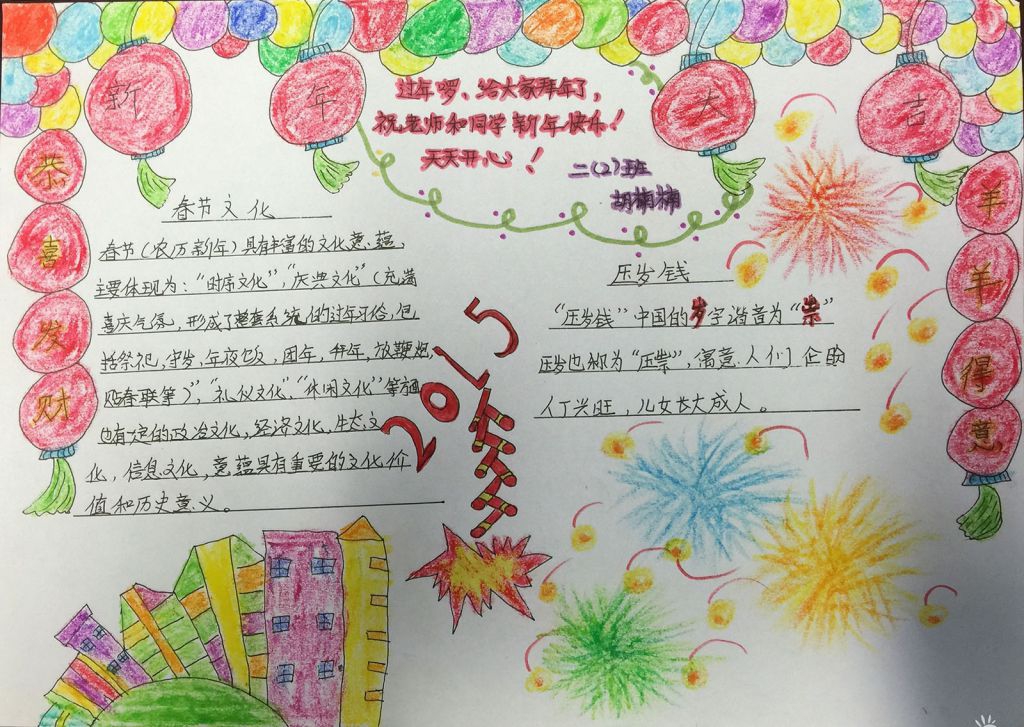 新年大吉
过年啰、给大家拜年了,
祝老师和同学新年快乐!
天天开心!
二(2)班
胡楠楠
恭喜发财
羊羊得意
春节文化
春节(农历新年)具有丰富的文化意蕴,
主要体现为:“时序文化”,“庆典文化”(充满
喜庆气氛,形成了整套系统的过年习俗,包
括祭祀,守岁,年夜饭,团年,拜年,放鞭炮,
贴春联等)”,“礼仪文化”、“休闲文化”等方面
也有一定的政治文化,经济文化,生态文
化,信息文化,意蕴具有重要的文化价
值和历史意义。
2015
压岁钱
“压岁钱”中国的岁字谐音为“祟”
压岁也称为“压祟”,寓意人们企盼
人丁兴旺,儿女长大成人。